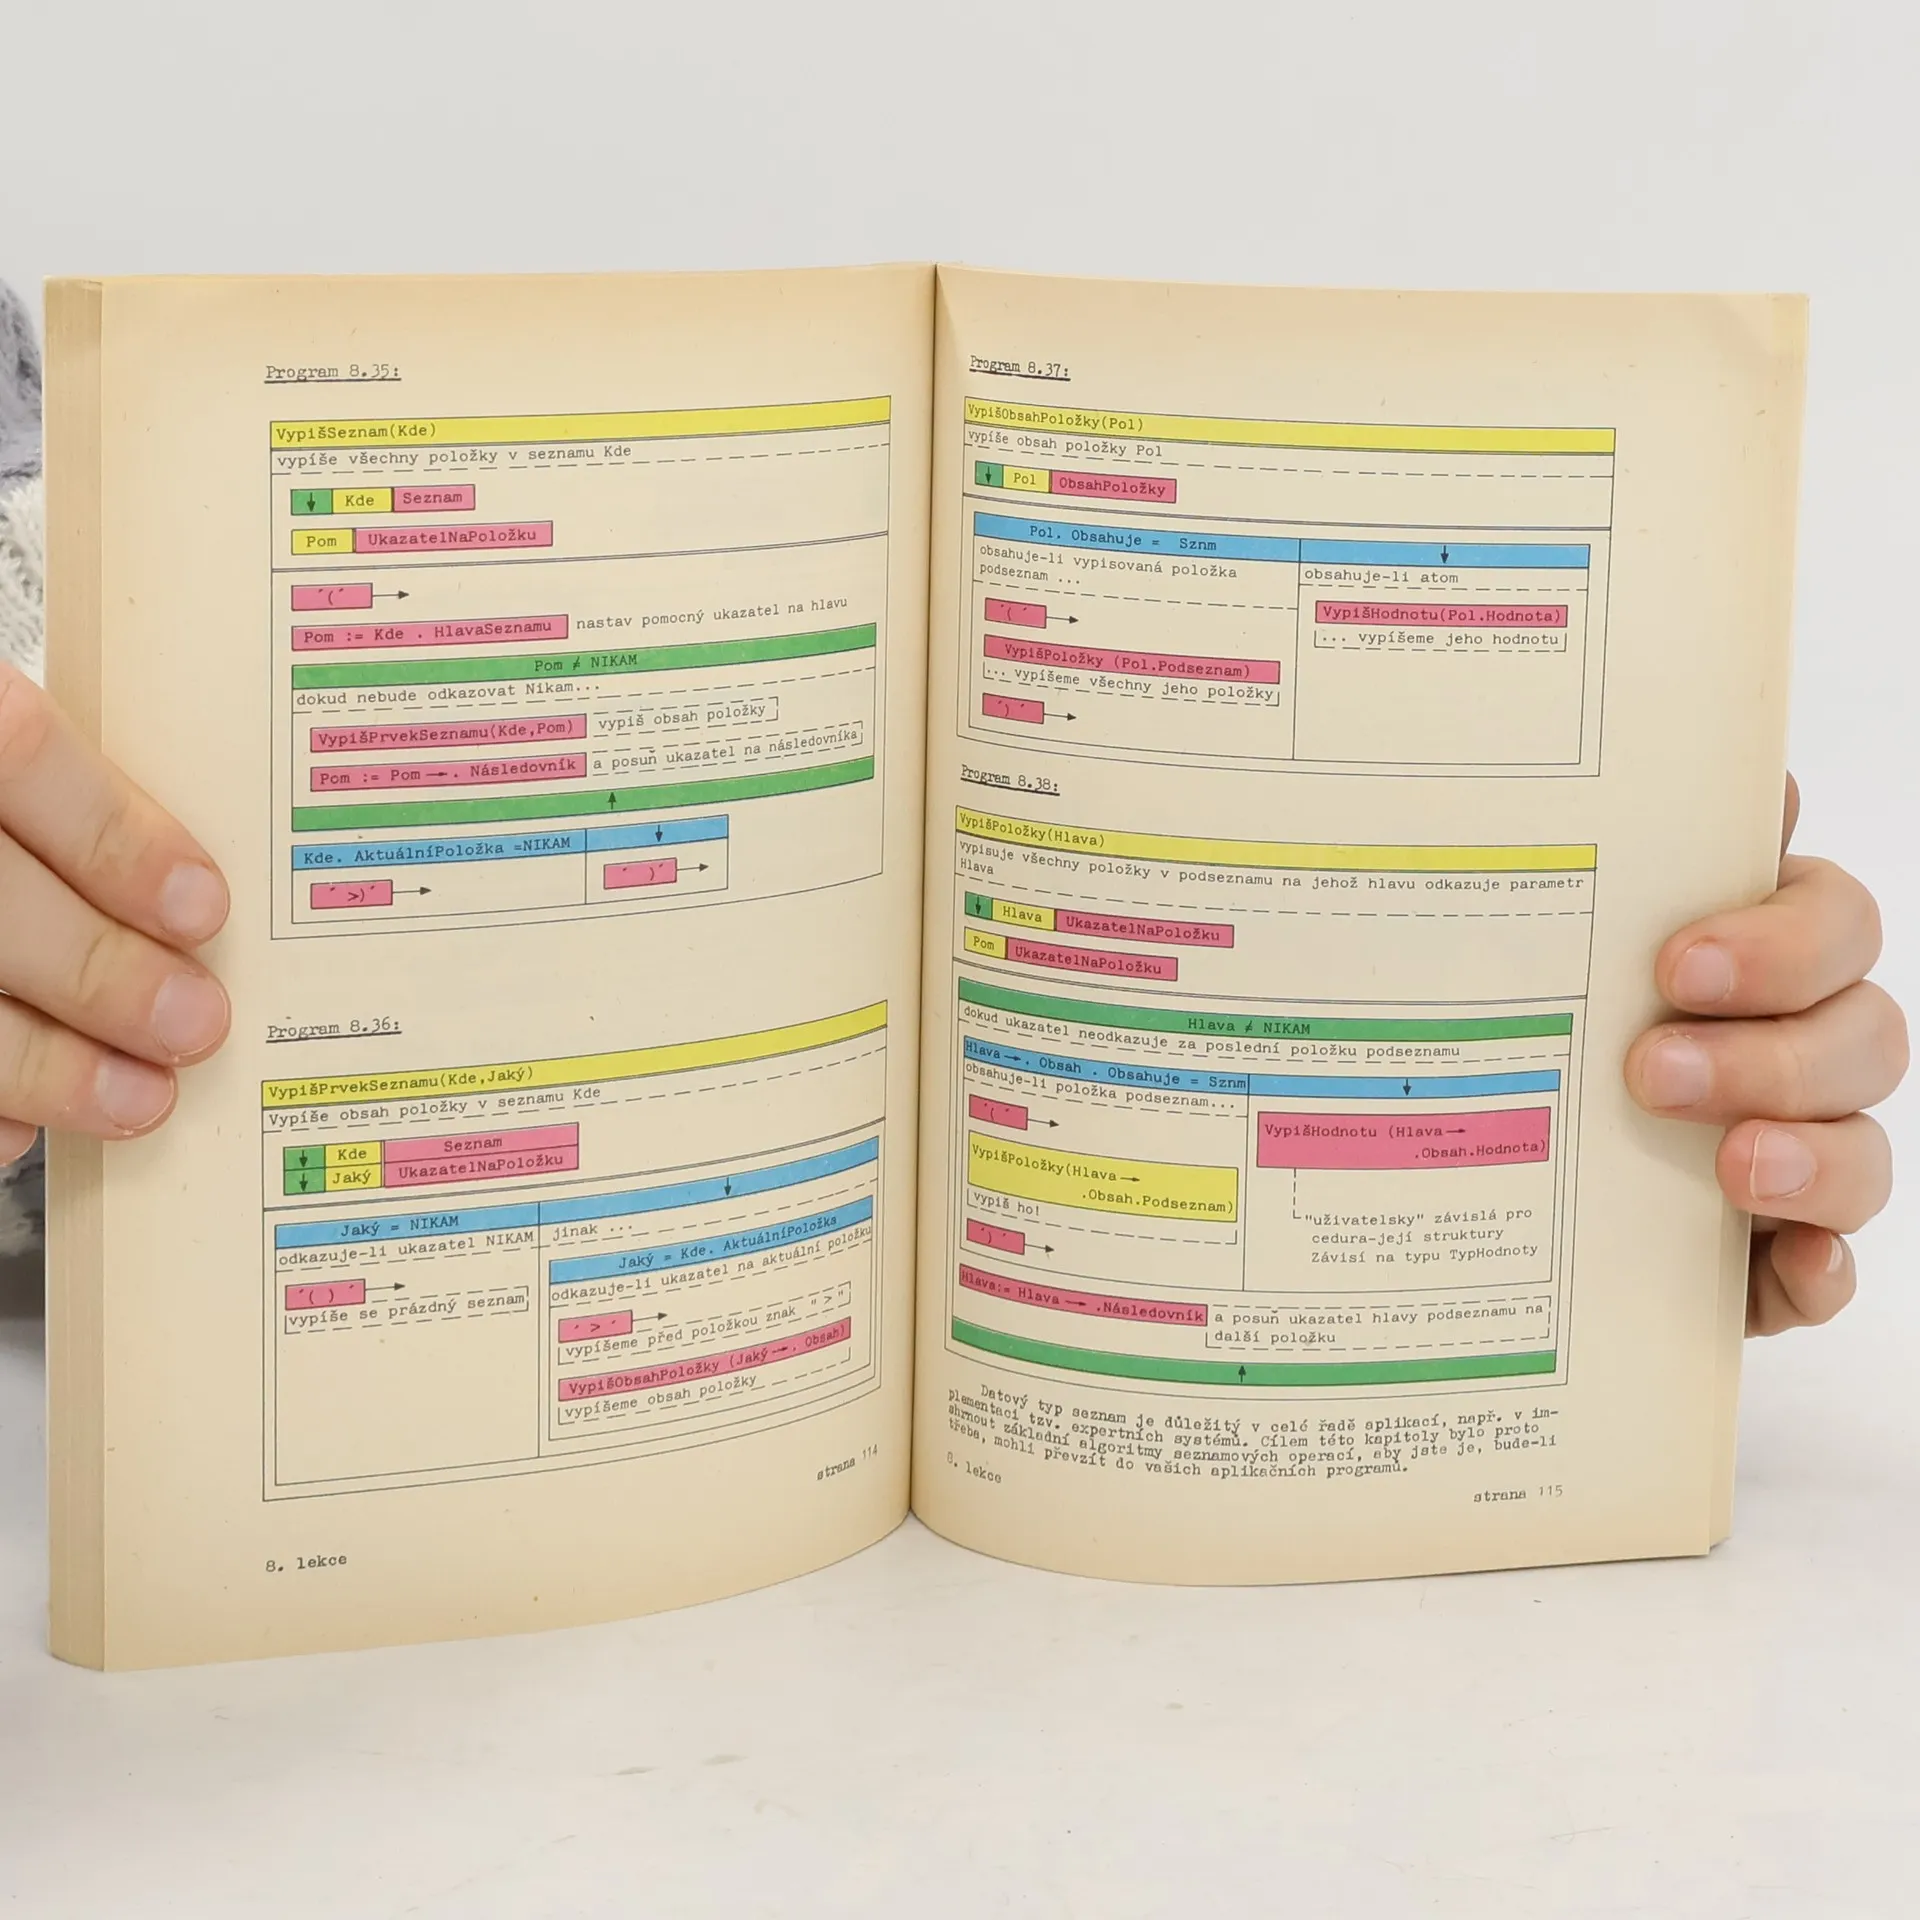 Program 8.35:
VypišSeznam(Kde)
vypíše všechny položky v seznamu Kde
↓ Kde Seznam
Pom UkazatelNaPoložku
´(´ →
Pom := Kde . HlavaSeznamu nastav pomocný ukazatel na hlavu
Pom ≠ NIKAM
dokud nebude odkazovat Nikam...
VypišPrvekSeznamu(Kde,Pom) vypiš obsah položky
Pom := Pom → . Následovník a posuň ukazatel na následovníka
↑
Kde. AktuálníPoložka =NIKAM ↓
´ >)´ → ´ )´ →
Program 8.36:
VypišPrvekSeznamu(Kde,Jaký)
Vypíše obsah položky v seznamu Kde
↓ Kde Seznam
↓ Jaký UkazatelNaPoložku
Jaký = NIKAM ↓
odkazuje-li ukazatel NIKAM jinak ...
´( )´ →
vypíše se prázdný seznam
Jaký = Kde. AktuálníPoložka
odkazuje-li ukazatel na aktuální položku
´ > ´ →
vypíšeme před položkou znak " > "
VypišObsahPoložky (Jaký → . Obsah)
vypíšeme obsah položky
strana 114
8. lekce
Program 8.37:
VypišObsahPoložky(Pol)
vypíše obsah položky Pol
↓ Pol ObsahPoložky
Pol. Obsahuje = Sznm ↓
obsahuje-li vypisovaná položka
podseznam ...
´(´ →
VypišPoložky (Pol.Podseznam)
... vypíšeme všechny jeho položky
´)´ →
obsahuje-li atom
VypišHodnotu(Pol.Hodnota)
... vypíšeme jeho hodnotu
Program 8.38:
VypišPoložky(Hlava)
vypisuje všechny položky v podseznamu na jehož hlavu odkazuje parametr
Hlava
↓ Hlava UkazatelNaPoložku
Pom UkazatelNaPoložku
Hlava ≠ NIKAM
dokud ukazatel neodkazuje za poslední položku podseznamu
Hlava → . Obsah . Obsahuje = Sznm ↓
obsahuje-li položka podseznam...
´(´ →
VypišPoložky(Hlava →
.Obsah.Podseznam)
vypiš ho!
´)´ →
VypišHodnotu (Hlava →
.Obsah.Hodnota)
"uživatelsky" závislá pro
cedura-její struktury
Závisí na typu TypHodnoty
Hlava:= Hlava → .Následovník a posuň ukazatel hlavy podseznamu na
další položku
↑
Datový typ seznam je důležitý v celé řadě aplikací, např. v im-
plementaci tzv. expertních systémů. Cílem této kapitoly bylo proto
shrnout základní algoritmy seznamových operací, aby jste je, bude-li
třeba, mohli převzít do vašich aplikačních programů.
8. lekce
strana 115